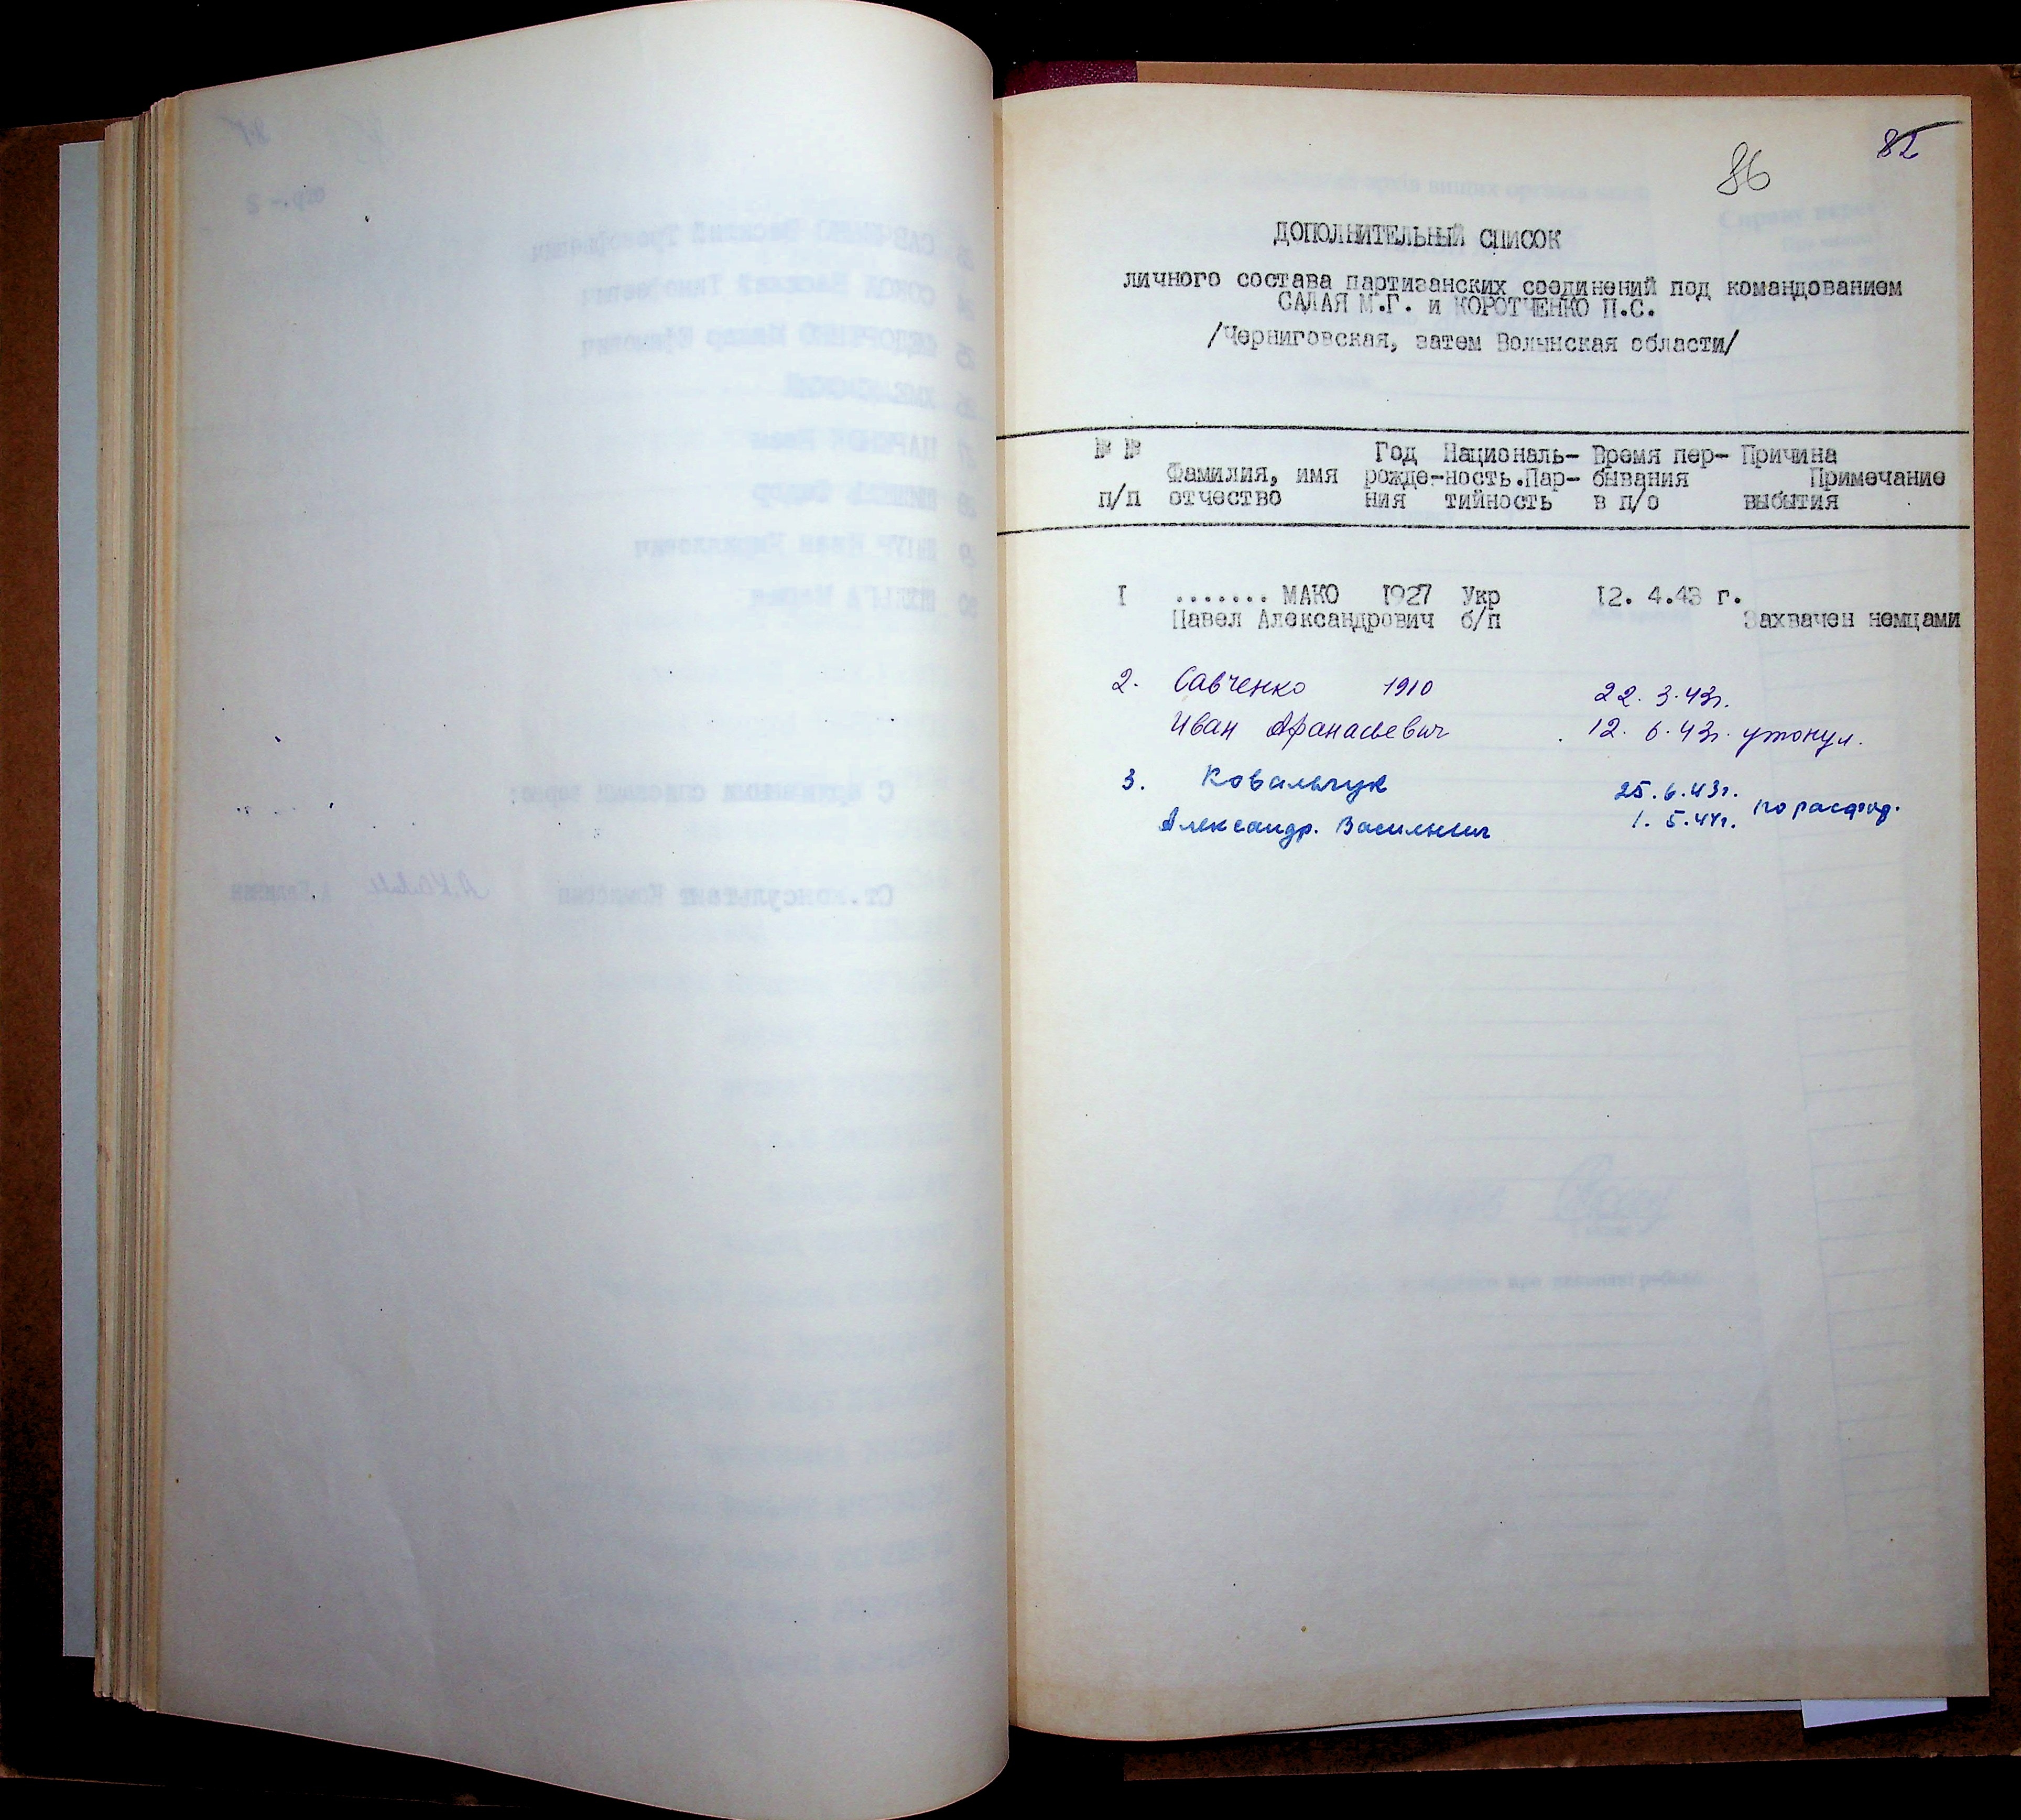 86
82
ДОПОЛНИТЕЛЬНЫЙ СПИСОК
личного состава партизанских соединений под командованием
САЛАЯ М.Г. и КОРОТЧЕНКО П.С.
/Черниговская, затем Волынская области/
№ № Год Националь- Время пер- Причина
Фамилия, имя рожде-ность.Пар- бывания Примечание
п/п отчество ния тийность в п/о выбытия
I ....... МАКО 1927 Укр 12. 4.43 г.
Павел Александрович б/п Захвачен немцами
2. Савченко 1910 22. 3.43г.
Иван Афанасьевич 12. 6.43г. утонул.
3. Ковальчук 25.6.43г.
Александр. Васильевич 1. 5.44г. по расформ.